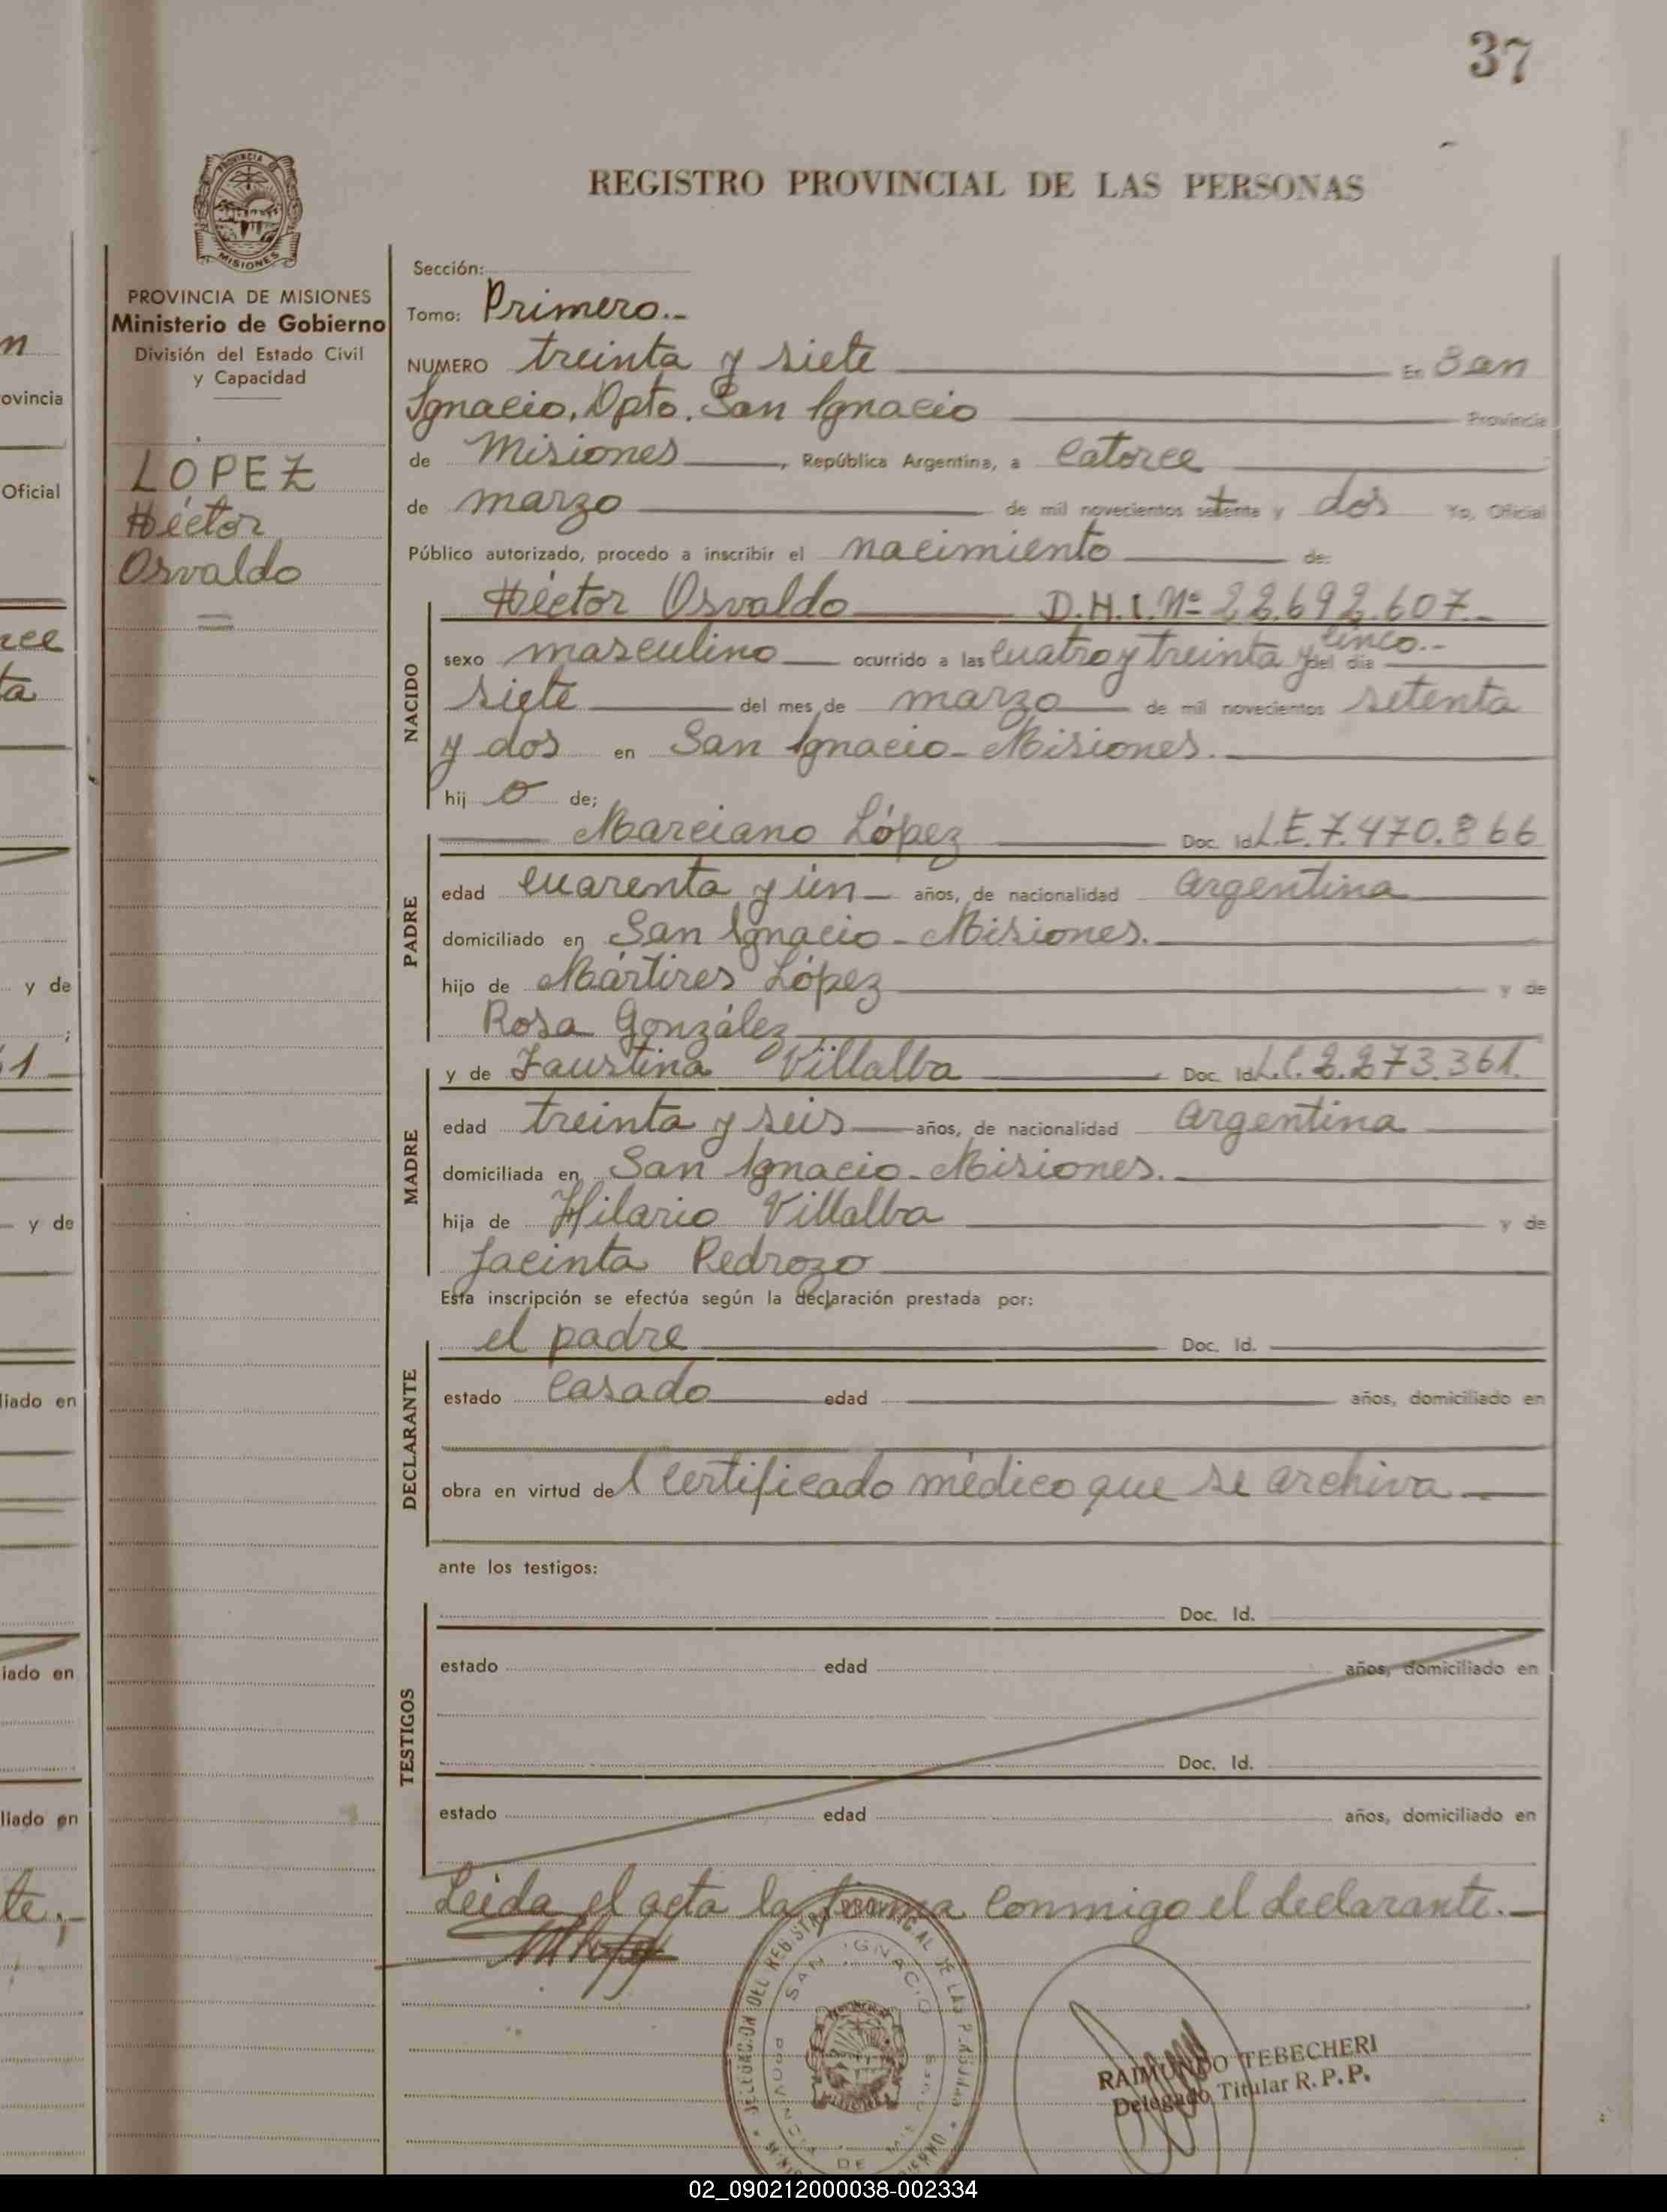 37
REGISTRO PROVINCIAL DE LAS PERSONAS
PROVINCIA DE
MISIONES
PROVINCIA DE MISIONES
Ministerio de Gobierno
División del Estado Civil
y Capacidad
LOPEZ
Héctor
Osvaldo
Sección:
Tomo: Primero.-
NUMERO treinta y siete En San
Ignacio, Dpto. San Ignacio Provincia
de Misiones, República Argentina, a catorce
de marzo de mil novecientos setenta y dos Yo, Oficial
Público autorizado, procedo a inscribir el nacimiento de:
NACIDO
Héctor Osvaldo D.N.I. Nº 22.692.607.-
sexo masculino ocurrido a las cuatro y treinta y cinco.- del día
siete del mes de marzo de mil novecientos setenta
y dos en San Ignacio - Misiones.
hijo de;
PADRE
Marciano López Doc. Id. L.E. 7.470.866
edad cuarenta y ún años, de nacionalidad argentina
domiciliado en San Ignacio - Misiones.
hijo de Mártires López y de
Rosa González
MADRE
y de Faustina Villalba Doc. Id. L.C. 2.273.361.
edad treinta y seis años, de nacionalidad argentina
domiciliada en San Ignacio - Misiones.
hija de Hilario Villalba y de
Jacinta Pedrozo
Esta inscripción se efectúa según la declaración prestada por:
DECLARANTE
el padre Doc. Id.
estado casado edad años, domiciliado en
obra en virtud del certificado médico que se archiva
ante los testigos:
TESTIGOS
Doc. Id.
estado edad años, domiciliado en
Doc. Id.
estado edad años, domiciliado en
Leída el acta la firma conmigo el declarante.-
DELEGACION DEL REGISTRO PROVINCIAL DE LAS P
SAN IGNACIO
PROVINCIA DE
RAIMUNDO TEBECHERI
Delegado Titular R.P.P.
n
ovincia
Oficial
y de
y de
liado en
iado en
liado en
te.-
02_090212000038-002334